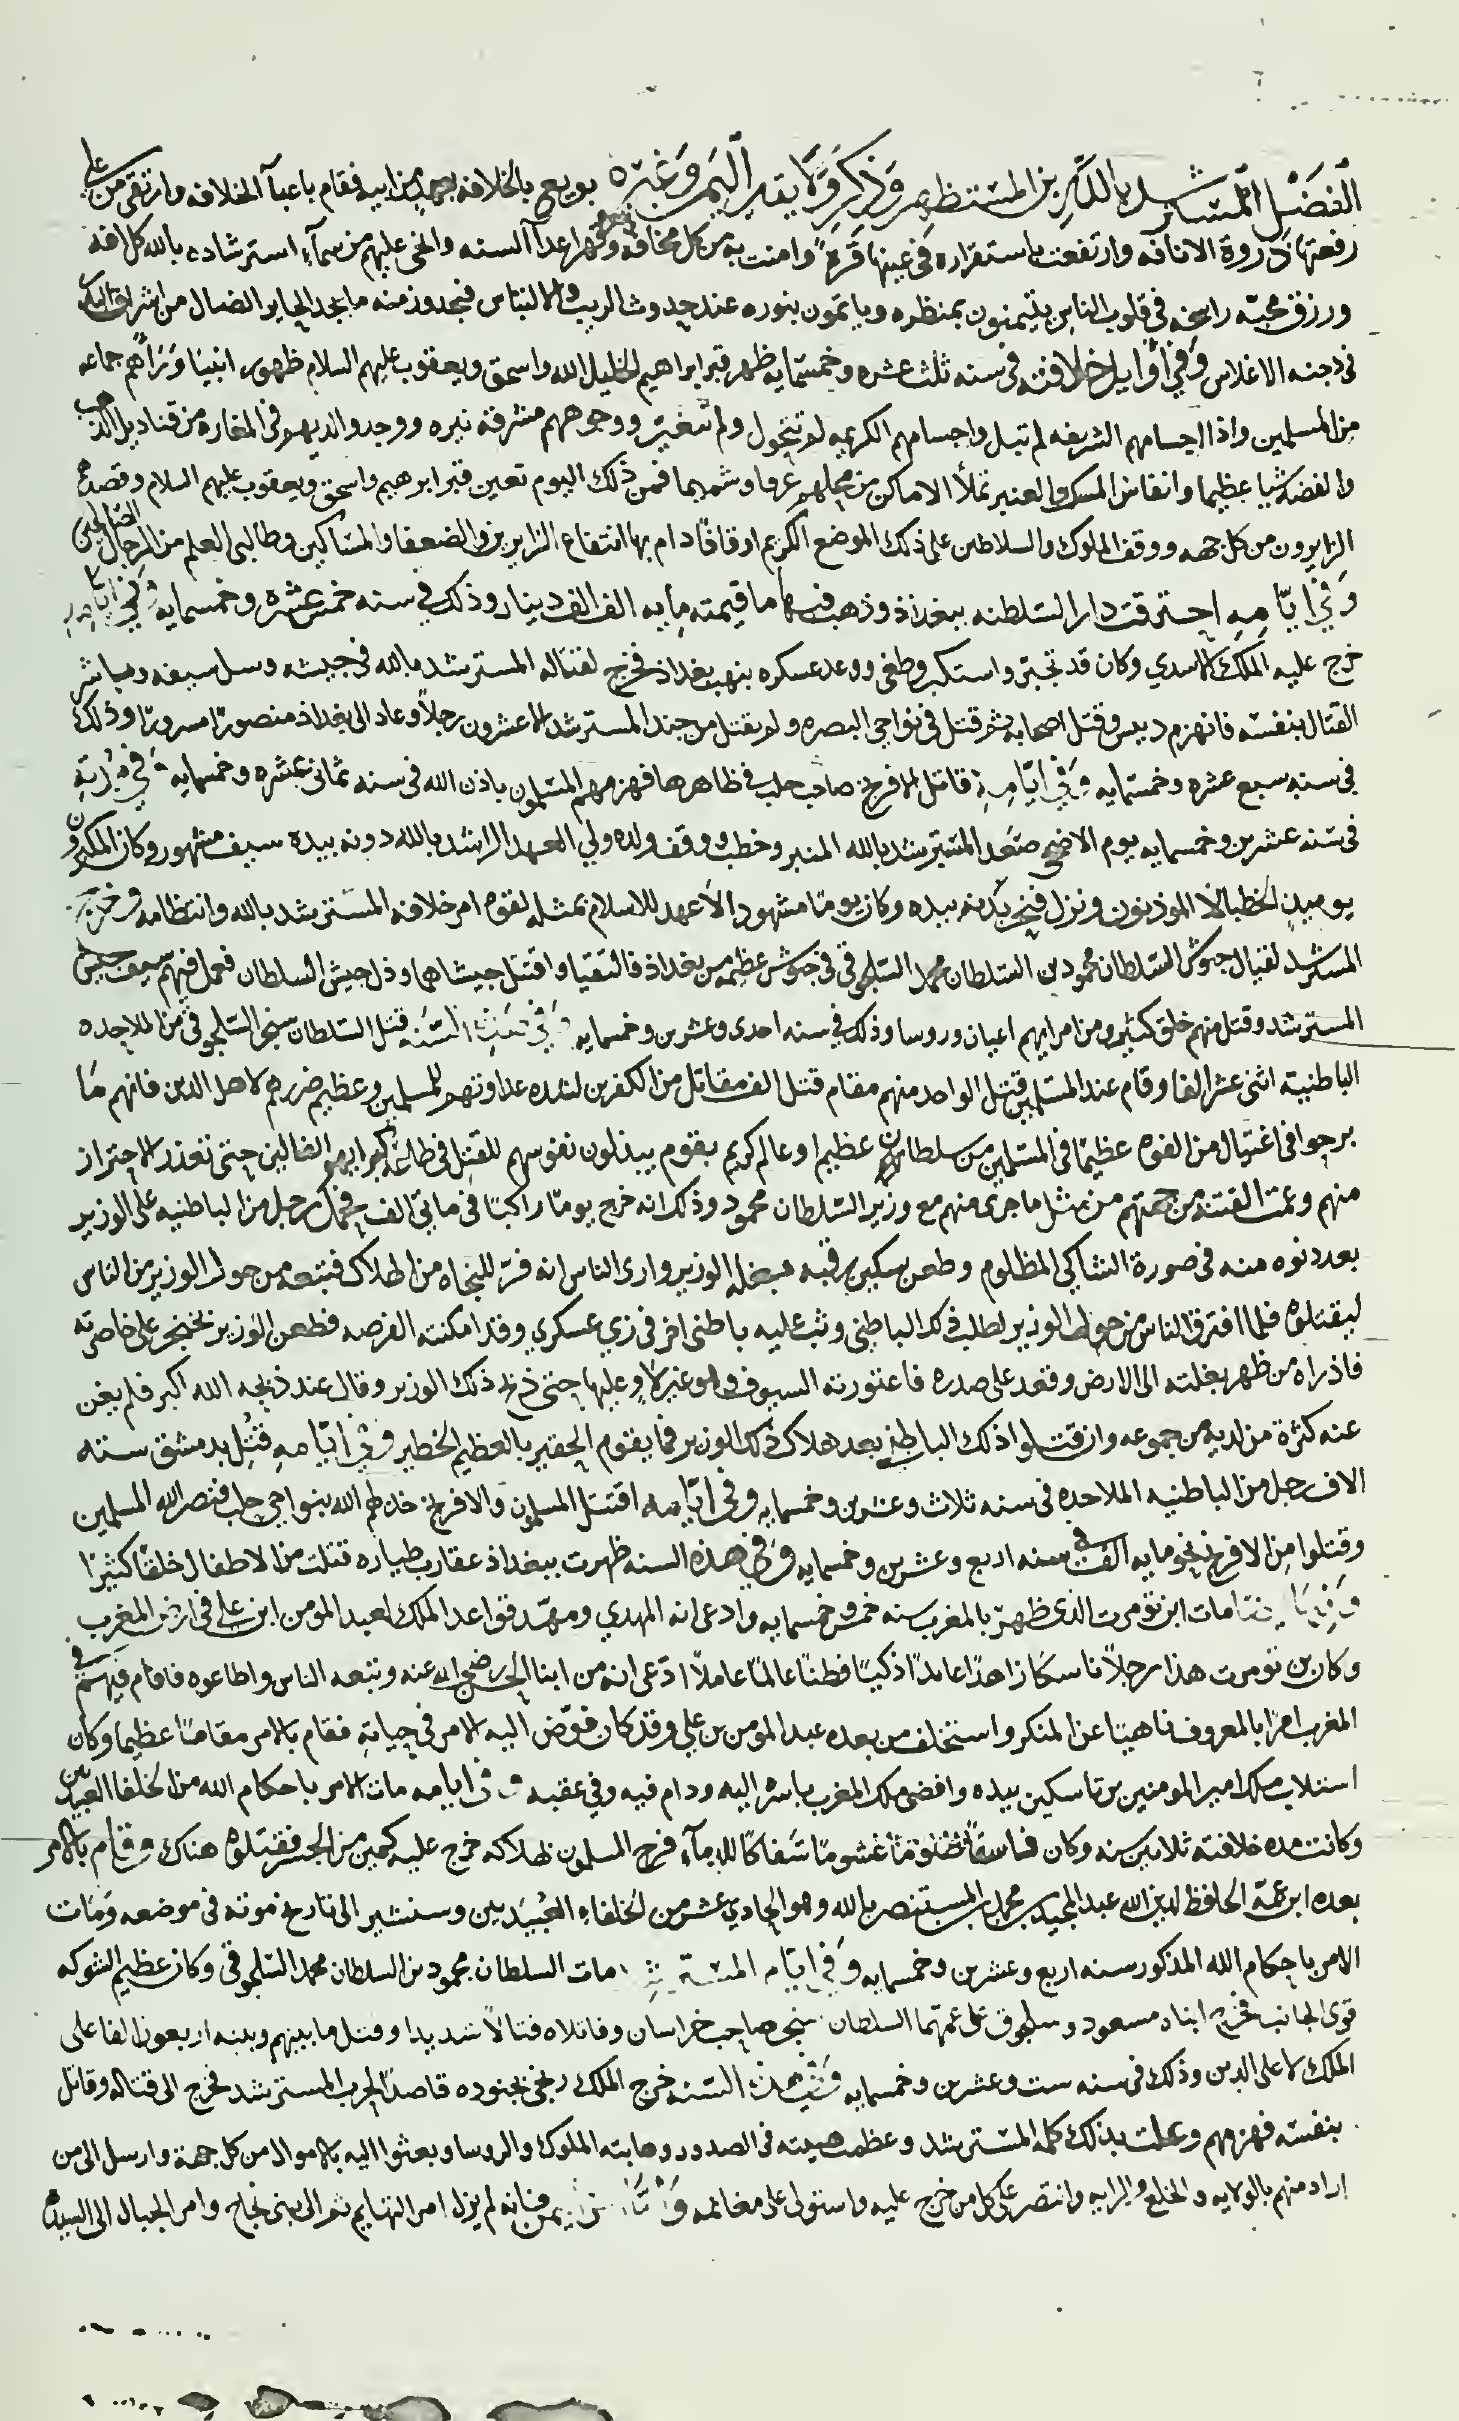 الفضل المسترشد بالله بن المستظهر وذكر ولاية بقية اليمن وغيره بويع بالخلافه بعهد من ابيه فقام باعبآ الخلافه وارتقى من على
رفعتها ذروة الانافه وارتفعت باستقراره في عينها قرة وامنت به من كل مخافه وقهر اعدآ السنه وانحى عليهم من سمآء استرشاده بالله كل افه
ورزق محبته راسخه في قلوب الناس يتيمنون بمنظره وياتمون بنوره عند حدوث الريب والالتباس فيجدوز منه ما يجد الحاير الضال من اشراق
في دجنه الاغلاس وفي اوايل خلافته في سنه ثلث عشره وخمسمايه ظهر قبر ابراهيم الخليل الله واسحق ويعقوب عليهم السلام ظهور ابينا وترأهم جماعه
من المسلمين واذا اجسامهم الشريفه لم تبل واجسامهم الكريمه لم تتحول ولم تتغير ووجوههم مشرقة نيره ووجدوا لديهم في المغاره من قناديل الذهب
والفضه شيا عظيما وانفاس المسك والعنبر تملأ الاماكن من محلهم عرفا وشميما فمن ذلك اليوم تعين قبر ابرهيم واسحق ويعقوب عليهم السلام وقصده
الزايرون من كل جهه ووقف الملوك والسلاطين على ذلك الموضع الكريم اوقافا دام بها انتفاع الزايرين والضعفا والمساكين وطالبى العلم من الرجال الصالحين
وفي ايامه احترقت دار السلطنه ببغداذ وذهب فيها ما قيمته مايه الف الف دينار وذلك في سنه خمس عشره وخمسمايه وفي ايامه
خرج عليه الملك الاسدي وكان قد تجبر واستكبر وطغى ووعد عسكره بنهب بغداذ فخرج لقتاله المسترشد بالله في جيشه وسل سيفه وباشر
القتال بنفسه فانهزم دبيس وقتل اصحابه ثم قتل في نواحي البصره ولم يقتل من جند المسترشد الا عشرون رجلا وعاد الى بغداذ منصورا مسرورا وذلك
في سنه سبع عشره وخمسمايه وفي ايامه قاتل الافرنج صاحب حلب في ظاهرها فهزمهم المسلمون باذن الله في سنه ثمانى عشره وخمسمايه وفي
في سنه عشرين وخمسمايه يوم الاضحى صعد المسترشد بالله المنبر وخطب ووقف ولده ولي العهد الراشد بالله دونه بيده سيف مشهور وكان المكبرون
يوميذ الخطبا لا الموذنون ونزل فنحر بدنه بيده وكان يوما مشهودا لا عهد للاسلام بمثله لقوه امر خلافه المسترشد بالله وانتظامه وخرج
المسترشد لقتال جيوش السلطان محمود بن السلطان محمد السلجوقي في جيوش عظيمه من بغداذ فالتقيا واقتتل جيشاهما وذل جيش السلطان فعمل فيهم سيف جيش
المسترشد وقتل منهم خلق كثير ومن امرايهم اعيان وروسا وذلك في سنه احدى وعشرين وخمسمايه وفي هذه السنه قتل السلطان سنجر السلجوقي من الملاحده
الباطنية اثنى عشر الفا وقام عند المسلمين قتل الواحد منهم مقام قتل الف مقاتل من الكفرين لشده عداوتهم للمسلمين وعظيم ضررهم لاهل الدين فانهم ما
برحوا في اغتيال من القوه عظيما في المسلمين من سلطان عظيم او عالم كريم بقوم يبذلون نفوسهم للقتل في طاعة كبرايهم الضالين حتى تعذر الاحتراز
منهم وعمت الفتنه من جهتهم من مثل ما جرى منهم مع وزير السلطان محمود وذلك انه خرج يوما راكبا في مايتى الف فحمل رجل من الباطنيه على الوزير
بعد دنوه منه في صورة الشاكي المظلوم وطعن بسكين رقبه بغله الوزير وارى الناس انه فر للنجاه من الهلاك فتبعه من حول الوزير من الناس
ليقتلوه فلما افترق الناس من حول الوزير لطلب ذلك الباطني وثب عليه باطنى اخر في زي عسكري وقد امكنته الفرصه فطعن الوزير بخنجر على خاصرته
فاذراه من ظهر بغلته الى الارض وقعد على صدره فاعتورته السيوف وهو غير لاو عليها حتى ذبح ذلك الوزير وقال عند ذبحه الله اكبر فلم يغن
عنه كثرة من لديه من جموعه وان قتلوا ذلك الباطني بعد هلاك ذلك الوزير فما يقوم الحقير بالعظيم الخطير وفي ايامه قتل بدمشق سته
الاف رجل من الباطنيه الملاحده في سنه ثلاث وعشرين وخمسمايه وفي ايامه اقتتل المسلمون والافرنج خذلهم الله بنواحي حلب فنصر الله المسلمين
وقتلوا من الافرنج نحو مايه الف في سنه اربع وعشرين وخمسمايه وفي هذه السنه ظهرت ببغداذ عقارب طياره قتلت من الاطفال خلقا كثيرا
وفيها مات ابن تومرت الذى ظهر بالمغرب سنه خمس وخمسمايه وادعى انه المهدي ومهد قواعد الملك لعبد المومن ابن علي في ارض المغرب
وكان بن تومرت هذا رجلا ناسكا زاهدا عابدا ذكيا فطنا عالما عاملا ادعى انه من ابنا الحسن رضي الله عنه وتبعه الناس واطاعوه فاقام فيهم في
المغرب امرا بالمعروف ناهيا عن المنكر واستخلف من بعده عبد المومن بن علي وقد كان فوض اليه الامر في حياته فقام بالامر مقاما عظيما وكان
استلاب ملك امير المومنين بن تاسكين بيده وافضى ملك المغرب باسره اليه ودام فيه وفي عقبه وفي ايامه مات الامر باحكام الله من الخلفا العبيديين
وكانت مده خلافته ثلاثين سنه وكان فاسقا ظلوما غشوما سفاكا للدمآء فرح المسلمون بهلاكه خرج عليه كمين من الجسر فقتلوه هناك وقام بالامر
بعده ابن عمه الحافظ لدين الله عبد المجيد بن محمد بن المستنصر بالله وهو الحادي عشر من الخلفاء العبيديين وسنشير الى تاريخ موته في موضعه ومات
الامر باحكام الله المذكور سنه اربع وعشرين وخمسمايه وفي ايام المسترشد مات السلطان محمود بن السلطان محمد السلجوقي وكان عظيم الشوكه
قوى الجانب فخرج ابناه مسعود وسلجوق على عمهما السلطان سنجر صاحب خراسان وقاتلاه قتالا شديدا وقتل ما بينهم وبينه اربعون الفا على
الملك لا على الدين وذلك في سنه ست وعشرين وخمسمايه وفي هذه السنه خرج الملك زنجى بجنوده قاصدا لحرب المسترشد فخرج الى قتاله وقاتل
بنفسه فهزمهم وعلت بذلك كلمه المسترشد وعظمت هيبته في الصدور وهابته الملوك والروسا وبعثوا اليه بالاموال من كل جهة وارسل الى من
اراد منهم بالولايه والخلع والرايه وانتصر على كل من خرج عليه واستولى على مغانمه واما اليمن فانه لم يزل امر التهايم ثم الى بنى نجاح وامر الجبال الى السيده